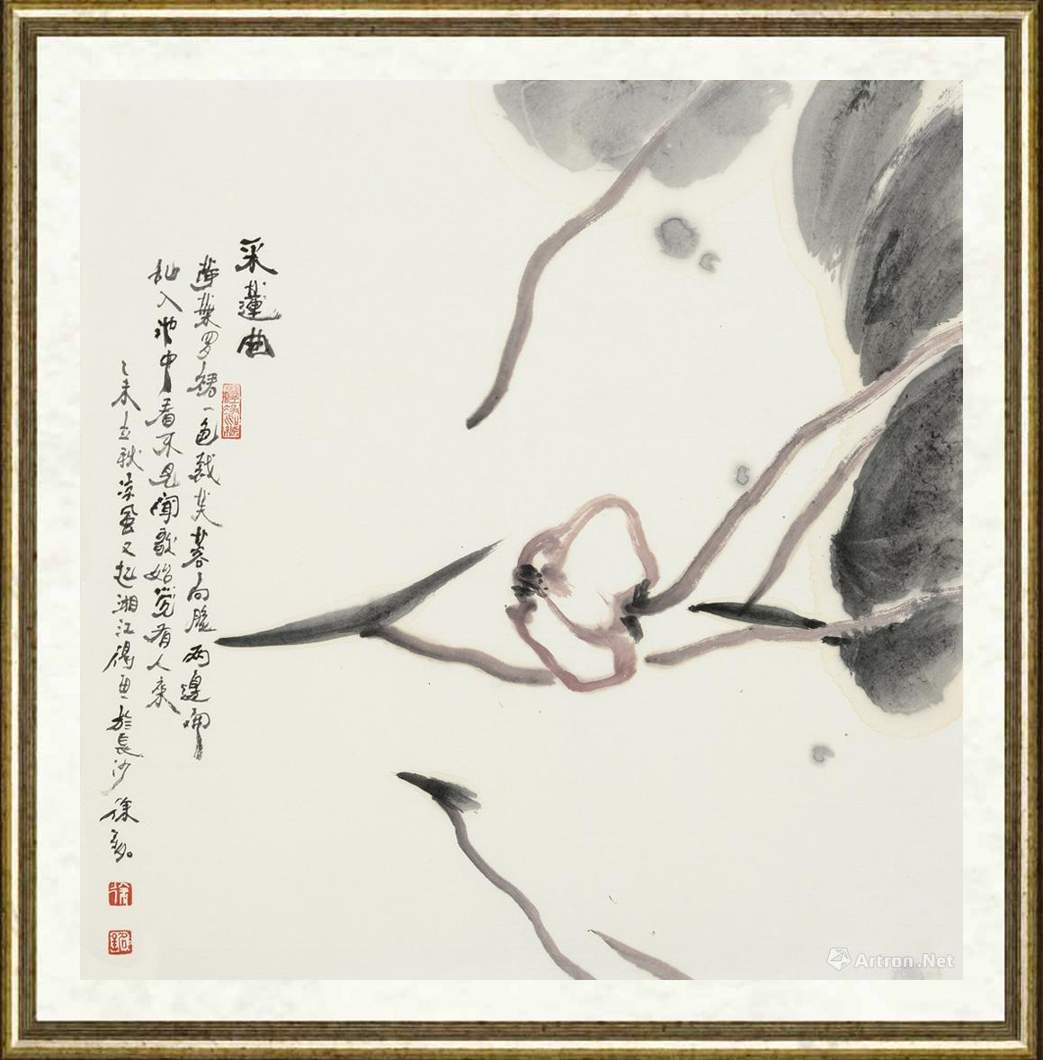 采蓮曲
蓮葉罗裙一色裁芙蓉向脸两邊開
乱入池中看不見聞歌始覺有人来
乙未立秋凉風又起湘江偶画於長沙 徐
徐
Artron.Net